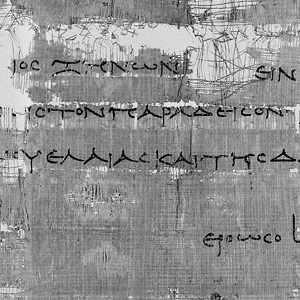 ιος Ζηνωνι ειν
ις τον παραδεισον
ελαιας και της δ
ερρωσο L